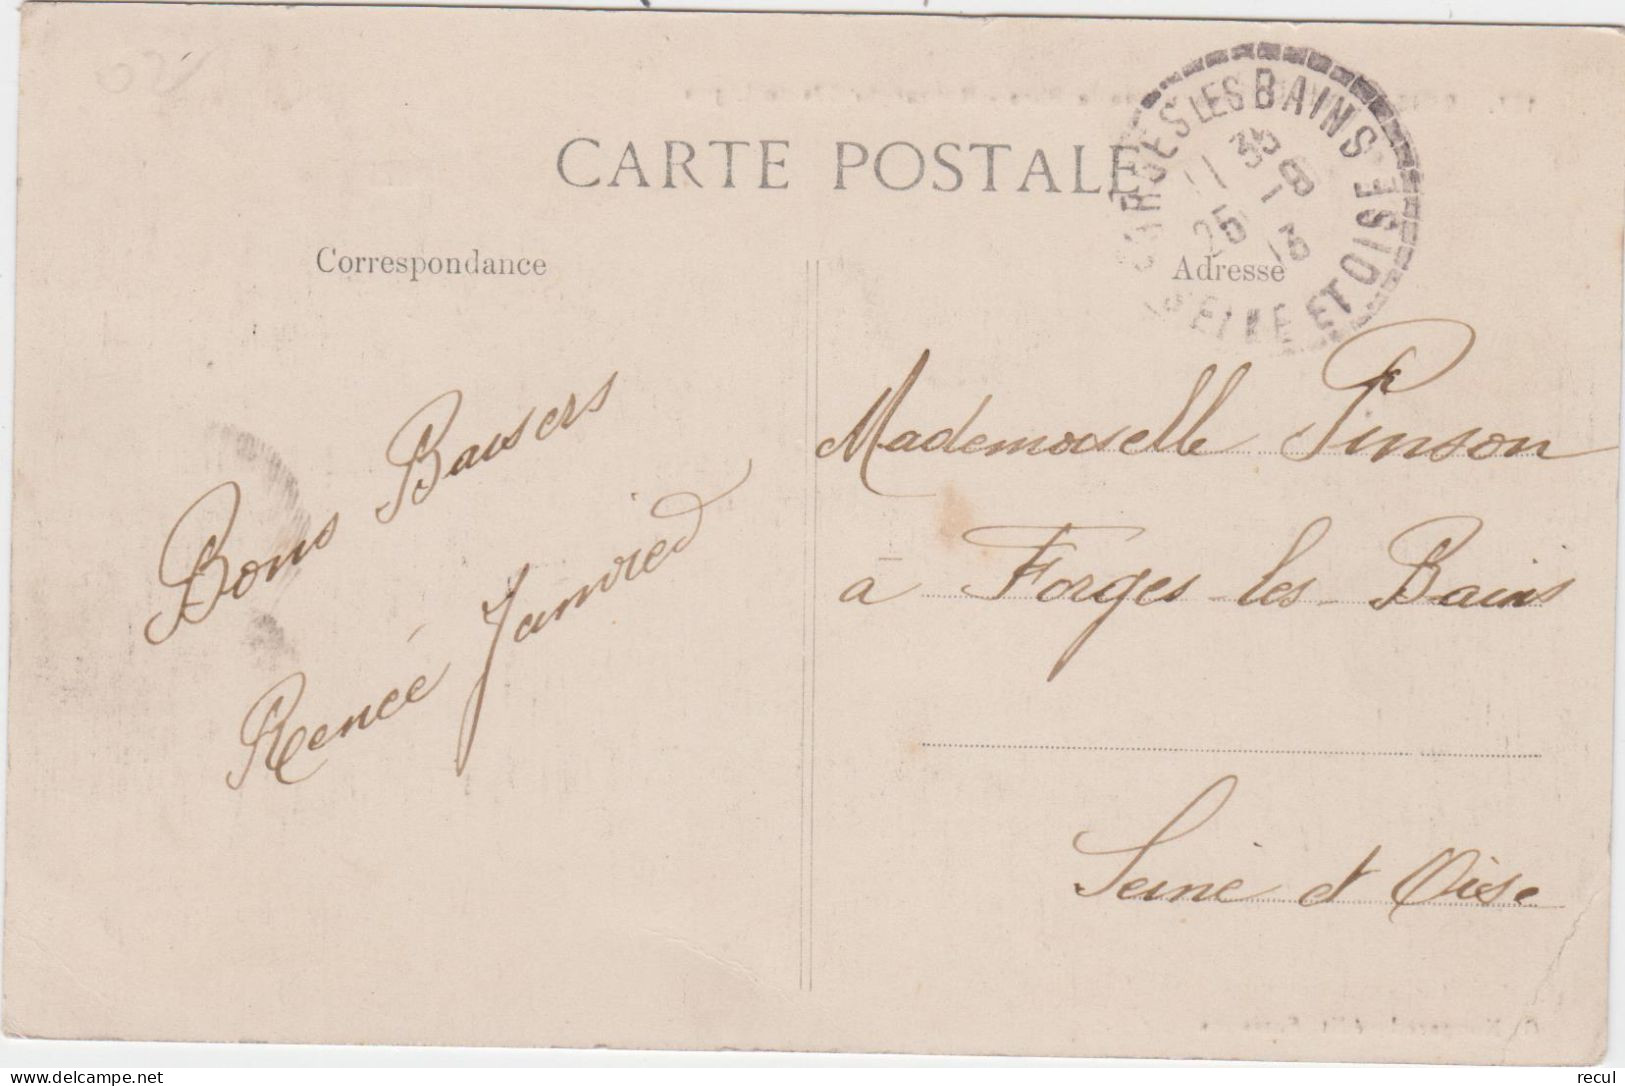 CARTE POSTALE
FORGES LES BAINS
11 35
25 - 8
13
SEINE ET OISE
Correspondance
Adresse
Bons Baisers
Renée Janvied
Mademoiselle Pinson
à Forges-les-Bains
Seine et Oise
www.delcampe.net
recul